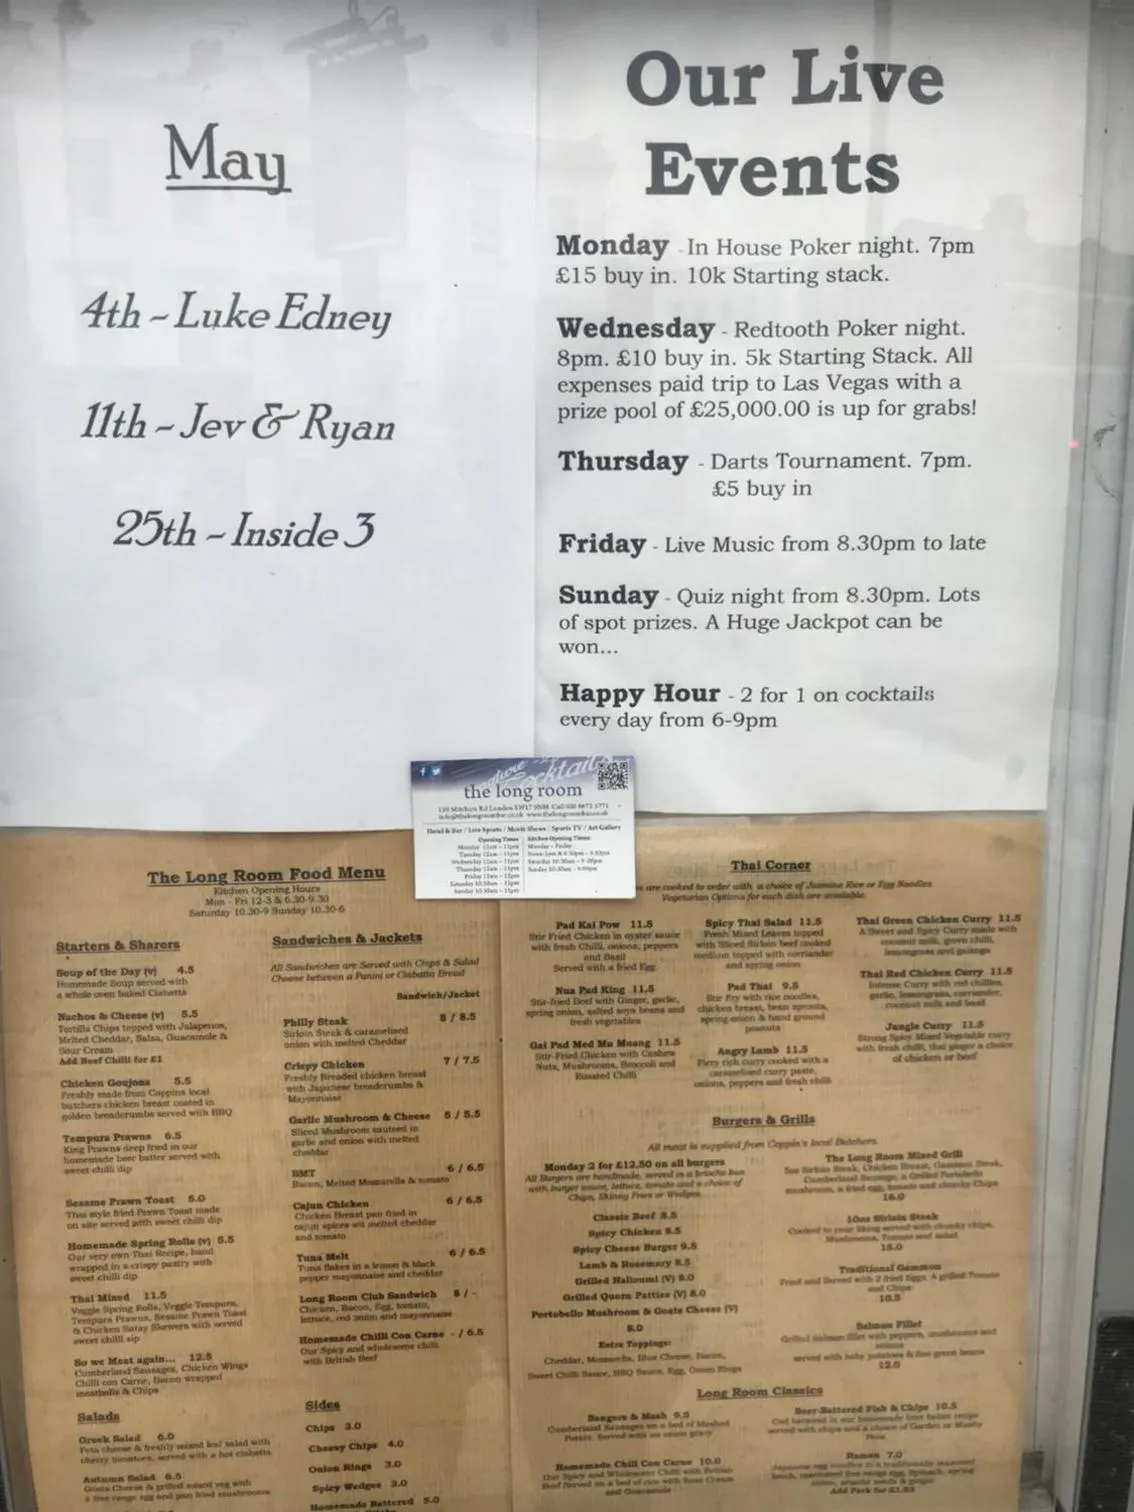 May
4th ~ Luke Edney
11th ~ Jev & Ryan
25th ~ Inside 3
Our Live
Events
Monday - In House Poker night. 7pm
£15 buy in. 10k Starting stack.
Wednesday - Redtooth Poker night.
8pm. £10 buy in. 5k Starting Stack. All
expenses paid trip to Las Vegas with a
prize pool of £25,000.00 is up for grabs!
Thursday - Darts Tournament. 7pm.
£5 buy in
Friday - Live Music from 8.30pm to late
Sunday - Quiz night from 8.30pm. Lots
of spot prizes. A Huge Jackpot can be
won...
Happy Hour - 2 for 1 on cocktails
every day from 6-9pm
Cocktails
the long room
Hotel & Bar / Live Sports / Movie Shows / Sports TV / Art Gallery
Opening Times
Kitchen Opening Times
The Long Room Food Menu
Kitchen Opening Hours
Mon - Fri 12-3 & 6.30-9.30
Saturday 10.30-9 Sunday 10.30-6
Starters & Sharers
Soup of the Day (v) 4.5
Homemade Soup served with
a whole oven baked Ciabatta
Nachos & Cheese (v) 5.5
Tortilla Chips topped with Jalapenos,
Melted Cheddar, Salsa, Guacamole &
Sour Cream
Add Beef Chilli for £1
Chicken Goujons 5.5
Freshly made from Coppins local
butchers chicken breast coated in
golden breadcrumbs served with BBQ
Tempura Prawns 6.5
King Prawns deep fried in our
homemade beer batter served with
sweet chilli dip
Sesame Prawn Toast 5.0
Thai style fried Prawn Toast made
on site served with sweet chilli dip
Homemade Spring Rolls (v) 5.5
Our very own Thai Recipe, hand
wrapped in a crispy pastry with
sweet chilli dip
Thai Mixed 11.5
Veggie Spring Rolls, Veggie Tempura,
Tempura Prawns, Sesame Prawn Toast
& Chicken Satay Skewers with served
sweet chilli sip
So we Meat again... 12.5
Cumberland Sausages, Chicken Wings
Chilli con Carne, Bacon wrapped
meatballs & Chips
Salads
Greek Salad 6.0
Feta cheese & freshly mixed leaf salad with
cherry tomatoes, served with a hot ciabatta
Autumn Salad 6.5
Goats Cheese & grilled mixed veg with
a free range egg and pan fried mushrooms
Sandwiches & Jackets
All Sandwiches are Served with Chips & Salad
Choose between a Panini or Ciabatta Bread
Sandwich/Jacket
Philly Steak 8 / 8.5
Sirloin Steak & caramelised
onion with melted Cheddar
Crispy Chicken 7 / 7.5
Freshly Breaded chicken breast
with Japanese breadcrumbs &
Mayonnaise
Garlic Mushroom & Cheese 5 / 5.5
Sliced Mushroom sauteed in
garlic and onion with melted
cheddar
BMT 6 / 6.5
Bacon, Melted Mozzarella & tomato
Cajun Chicken 6 / 6.5
Chicken Breast pan fried in
cajun spices wit melted cheddar
and tomato
Tuna Melt 6 / 6.5
Tuna flakes in a lemon & black
pepper mayonnaise and cheddar
Long Room Club Sandwich 8 / -
Chicken, Bacon, Egg, tomato,
lettuce, red onion and mayonnaise
Homemade Chilli Con Carne - / 6.5
Our Spicy and wholesome chilli
with British Beef
Sides
Chips 3.0
Cheesy Chips 4.0
Onion Rings 3.0
Spicy Wedges 3.0
Homemade Battered 5.0
Thai Corner
are cooked to order with a choice of Jasmine Rice or Egg Noodles
Vegetarian Options for each dish are available.
Pad Kai Pow 11.5
Stir Fried Chicken in oyster sauce
with fresh Chilli, onions, peppers
and Basil
Served with a fried Egg
Nua Pad King 11.5
Stir-fried Beef with Ginger, garlic,
spring onion, salted soya beans and
fresh vegetables
Gai Pad Med Mu Muang 11.5
Stir-Fried Chicken with Cashew
Nuts, Mushrooms, Broccoli and
Roasted Chilli
Spicy Thai Salad 11.5
Fresh Mixed Leaves topped
with Sliced Sirloin beef cooked
medium topped with corriander
and spring onion
Pad Thai 9.5
Stir Fry with rice noodles,
chicken breast, bean sprouts,
spring onion & hand ground
peanuts
Angry Lamb 11.5
Fiery rich curry cooked with a
caramelised curry paste,
onions, peppers and fresh chilli
Thai Green Chicken Curry 11.5
A Sweet and Spicy Curry made with
coconut milk, green chilli,
lemongrass and galanga
Thai Red Chicken Curry 11.5
Intense Curry with red chillies,
garlic, lemongrass, corriander,
coconut milk and basil
Jungle Curry 11.5
Strong Spicy Mixed Vegetable curry
with fresh chilli, thai ginger a choice
of chicken or beef
Burgers & Grills
All meat is supplied from Coppin's local Butchers.
Monday 2 for £12.50 on all burgers
All Burgers are handmade, served in a brioche bun
with burger sauce, lettuce, tomato and a choice of
Chips, Skinny Fries or Wedges
Classic Beef 8.5
Spicy Chicken 8.5
Spicy Cheese Burger 9.5
Lamb & Rosemary 8.5
Grilled Halloumi (V) 8.0
Grilled Quorn Patties (V) 8.0
Portobello Mushroom & Goats Cheese (V)
8.0
Extra Toppings:
Cheddar, Mozzarella, Blue Cheese, Bacon,
Sweet Chilli Sauce, BBQ Sauce, Egg, Onion Rings
The Long Room Mixed Grill
5oz Sirloin Steak, Chicken Breast, Gammon Steak,
Cumberland Sausage, a Grilled Portobello
mushroom, a fried egg, tomato and chunky Chips
16.0
10oz Sirloin Steak
Cooked to your liking served with chunky chips,
Mushrooms, Tomato and salad
Traditional Gammon
Fried and Served with 2 fried Eggs, A grilled Tomato
and Chips
10.5
Salmon Fillet
Grilled Salmon fillet with peppers, mushrooms and
onions
served with baby potatoes & fine green beans
12.0
Long Room Classics
Bangers & Mash 9.5
Cumberland Sausages on a bed of Mashed
Potato. Served with an onion gravy
Homemade Chilli Con Carne 10.0
Our Spicy and Wholesome Chilli with British
Beef Served on a bed of rice with Sour Cream
and Guacamole
Beer-Battered Fish & Chips 10.5
served with chips and a choice of Garden or Mushy
Peas
Ramen 7.0